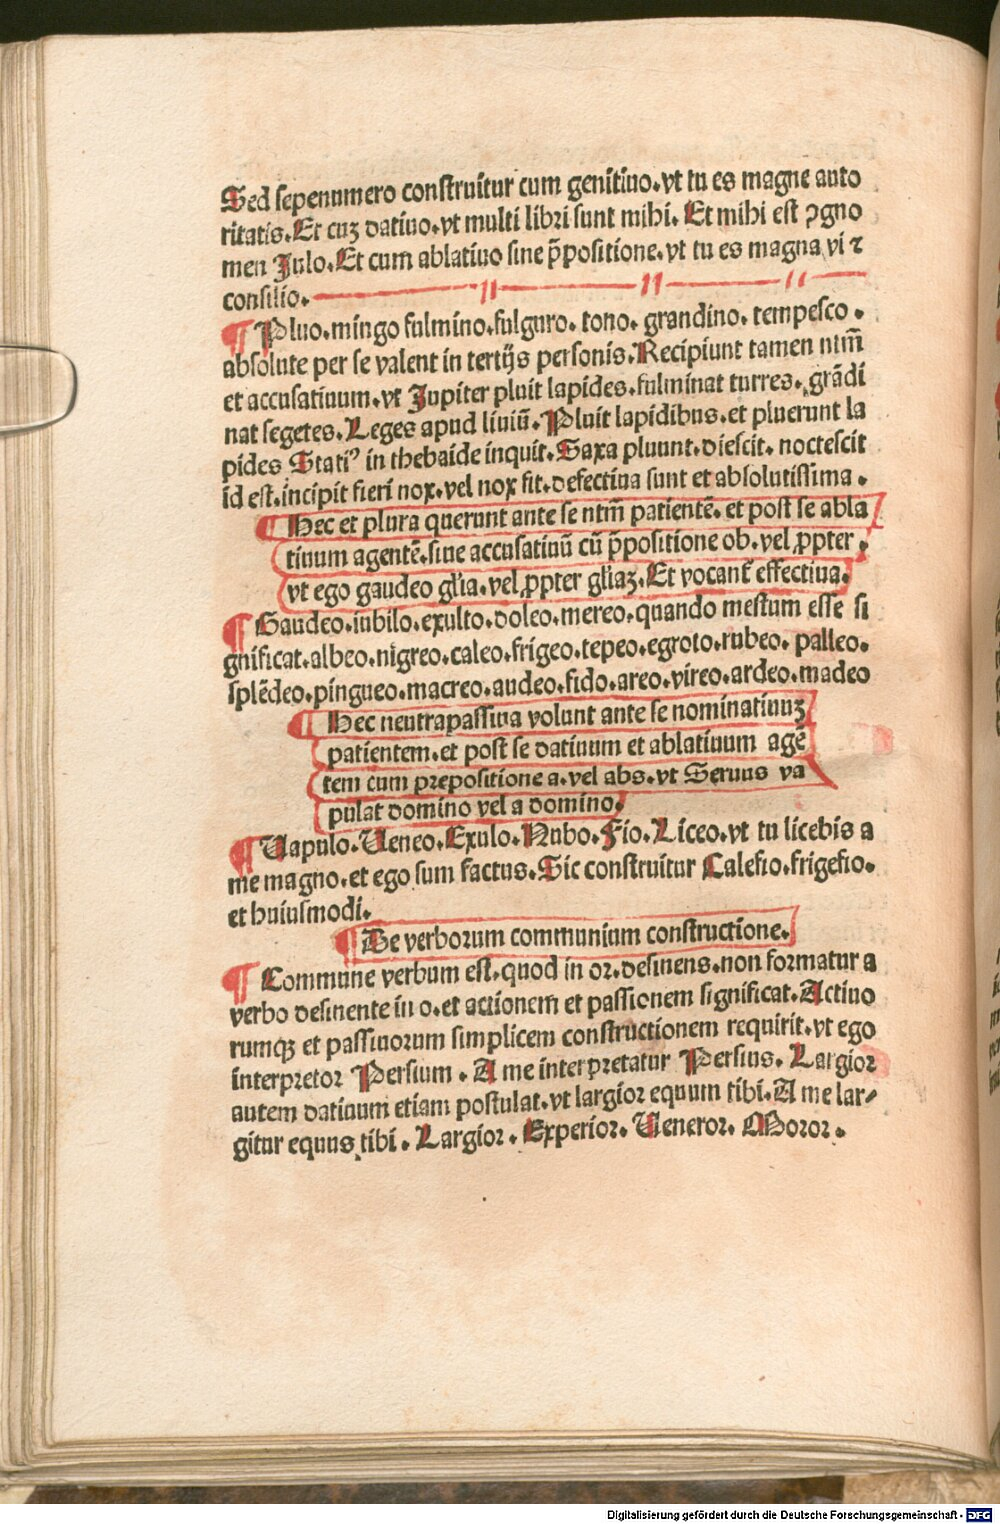 Sed sepenumero construitur cum genitiuo.vt tu es magne auto
ritatis.Et cuȝ datiuo.vt multi libri sunt mihi. Et mihi est ꝯgno
men Julo.Et cum ablatiuo sine p̄positione.vt tu es magna vi ⁊
consilio.
¶ Pluo.mingo fulmino.fulguro. tono. grandino. tempesco.
absolute per se valent in tertijs personis.Recipiunt tamen ntm̄
et accusatiuum.vt Jupiter pluit lapides.fulminat turres. grādi
nat segetes.Leges apud liuiū.Pluit lapidibus.et pluerunt la
pides Statiꝰ in thebaide inquit.Saxa pluunt.diescit. noctescit
id est.incipit fieri nox.vel nox fit.defectiua sunt et absolutissima.
¶ Hec et plura querunt ante se ntm̄ patientē.et post se abla
tiuum agentē.siue accusatiuū cū p̄positione ob.vel ꝓpter.
vt ego gaudeo gl̄ia.vel ꝓpter gl̄iaȝ.Et vocant̄ effectiua.
¶ Gaudeo.iubilo.exulto.doleo.mereo.quando mestum esse si
gnificat.albeo.nigreo.caleo.frigeo.tepeo.egroto.rubeo. palleo.
splēdeo.pingueo.macreo.audeo.fido.areo.vireo.ardeo.madeo
¶ Hec neutrapassiua volunt ante se nominatiuuȝ
patientem.et post se datiuum et ablatiuum agē
tem cum prepositione a.vel abs.vt Seruus va
pulat domino vel a domino.
¶ Vapulo.Veneo.Exulo.Nubo.Fio.Liceo.vt tu licebis a
me magno.et ego sum factus.Sic construitur Calefio.frigefio.
et huiusmodi.
¶ De verborum communium constructione.
¶ Commune verbum est.quod in or.desinens.non formatur a
verbo desinente in o.et actionem et passionem significat.Actiuo
rumqȝ et passiuorum simplicem constructionem requirit.vt ego
interpretor Persium. A me interpretatur Persius. Largior
autem datiuum etiam postulat.vt largior equum tibi.A me lar⸗
gitur equus tibi. Largior. Experior. Veneror. Moror.
Digitalisierung gefördert durch die Deutsche Forschungsgemeinschaft - DFG